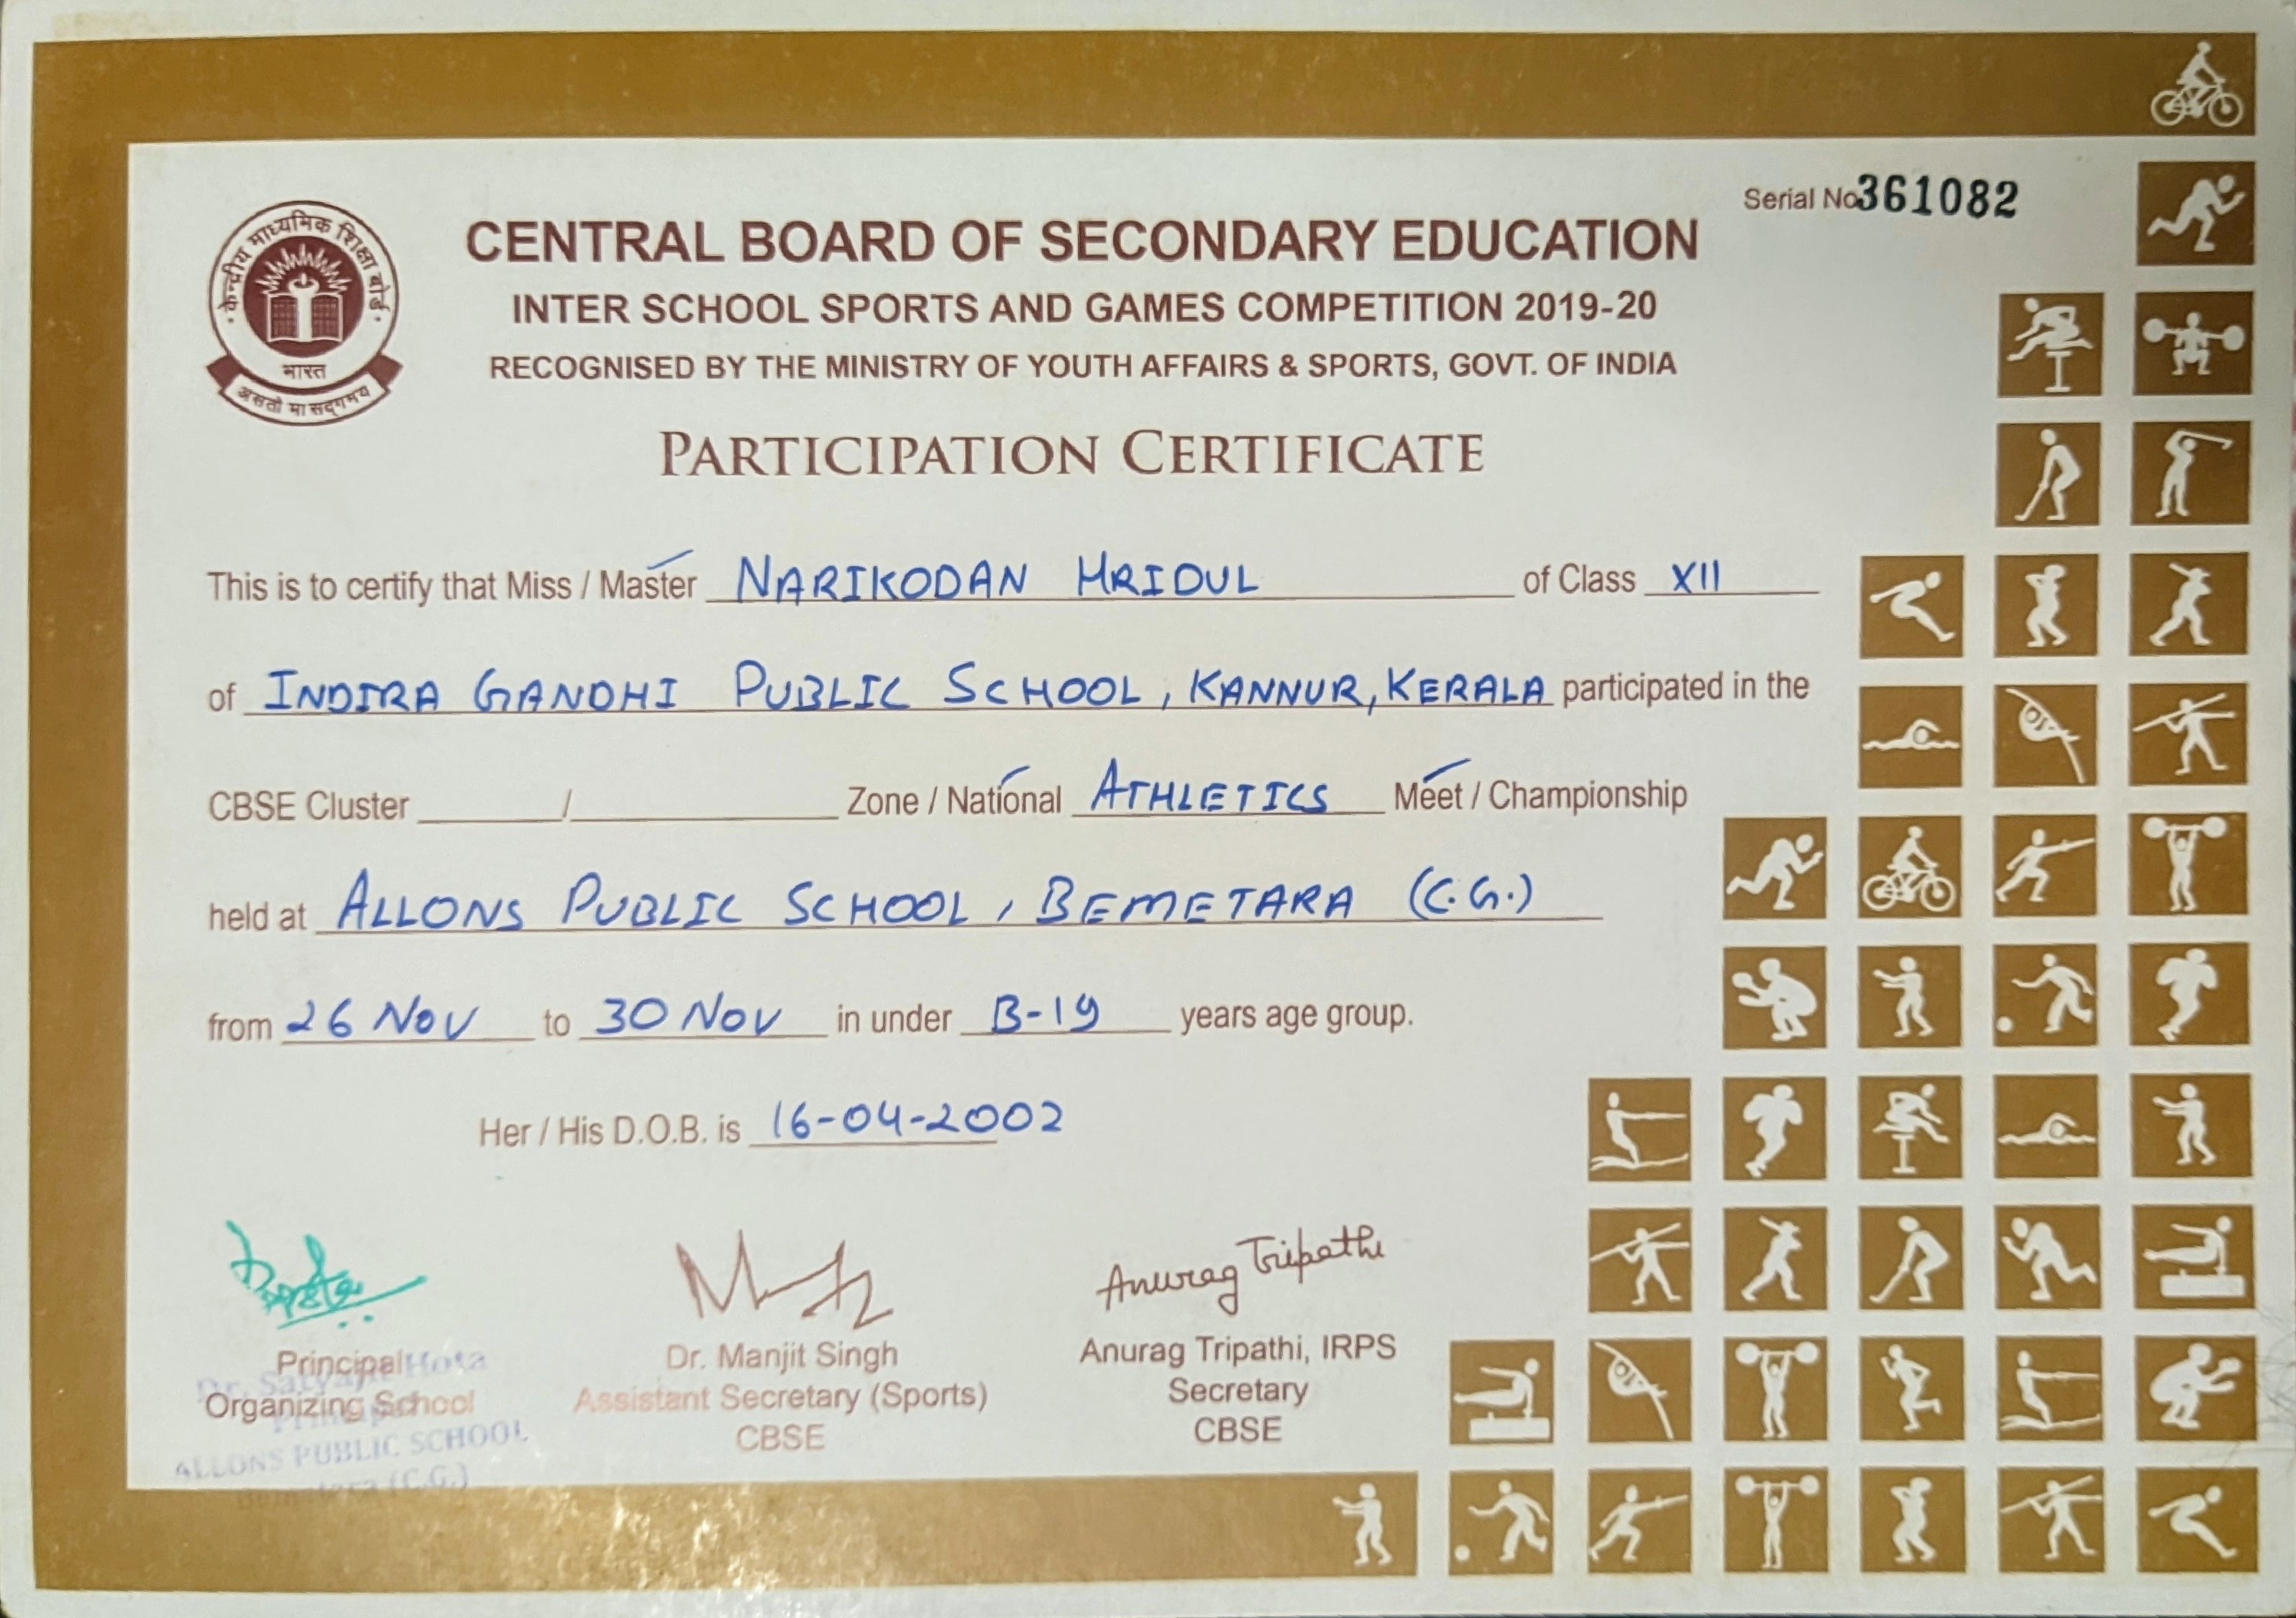 Serial No. 361082
केन्द्रीय माध्यमिक शिक्षा बोर्ड
भारत
असतो मा सद्गमय
CENTRAL BOARD OF SECONDARY EDUCATION
INTER SCHOOL SPORTS AND GAMES COMPETITION 2019-20
RECOGNISED BY THE MINISTRY OF YOUTH AFFAIRS & SPORTS, GOVT. OF INDIA
PARTICIPATION CERTIFICATE
This is to certify that Miss / Master NARIKODAN HRIDUL of Class XII
of INDIRA GANDHI PUBLIC SCHOOL, KANNUR, KERALA participated in the
CBSE Cluster / Zone / National ATHLETICS Meet / Championship
held at ALLONS PUBLIC SCHOOL, BEMETARA (C.G.)
from 26 NOV to 30 NOV in under B-19 years age group.
Her / His D.O.B. is 16-04-2002
Anurag Tripathi
Principal
Organizing School
Dr. Satyajit Hota
Principal
ALLONS PUBLIC SCHOOL
Bemetara (C.G.)
Dr. Manjit Singh
Assistant Secretary (Sports)
CBSE
Anurag Tripathi, IRPS
Secretary
CBSE